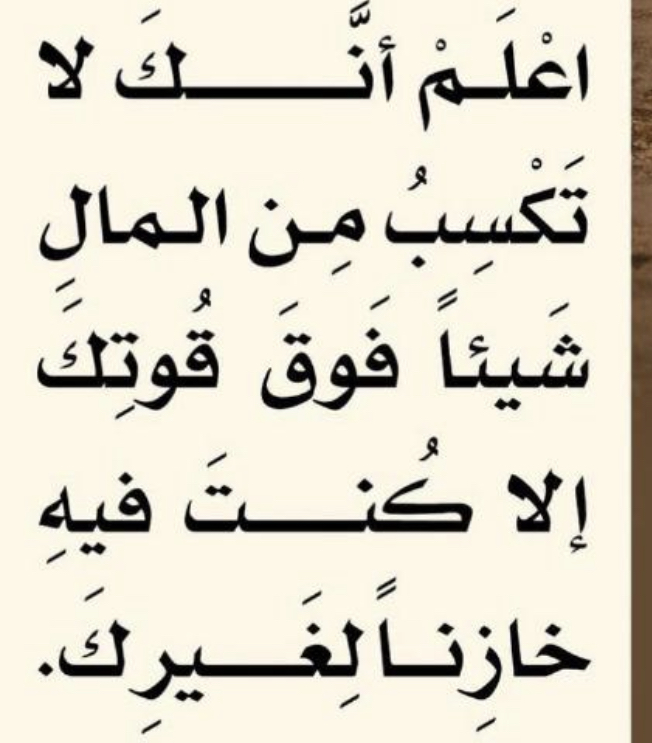 اعْلَمْ أنَّـــــكَ لا
تَكْسِبُ مِن المالِ
شَيئاً فَوقَ قُوتِكَ
إلا كُنـــتَ فيهِ
خازِنـاً لِغَـــيرِكَ.